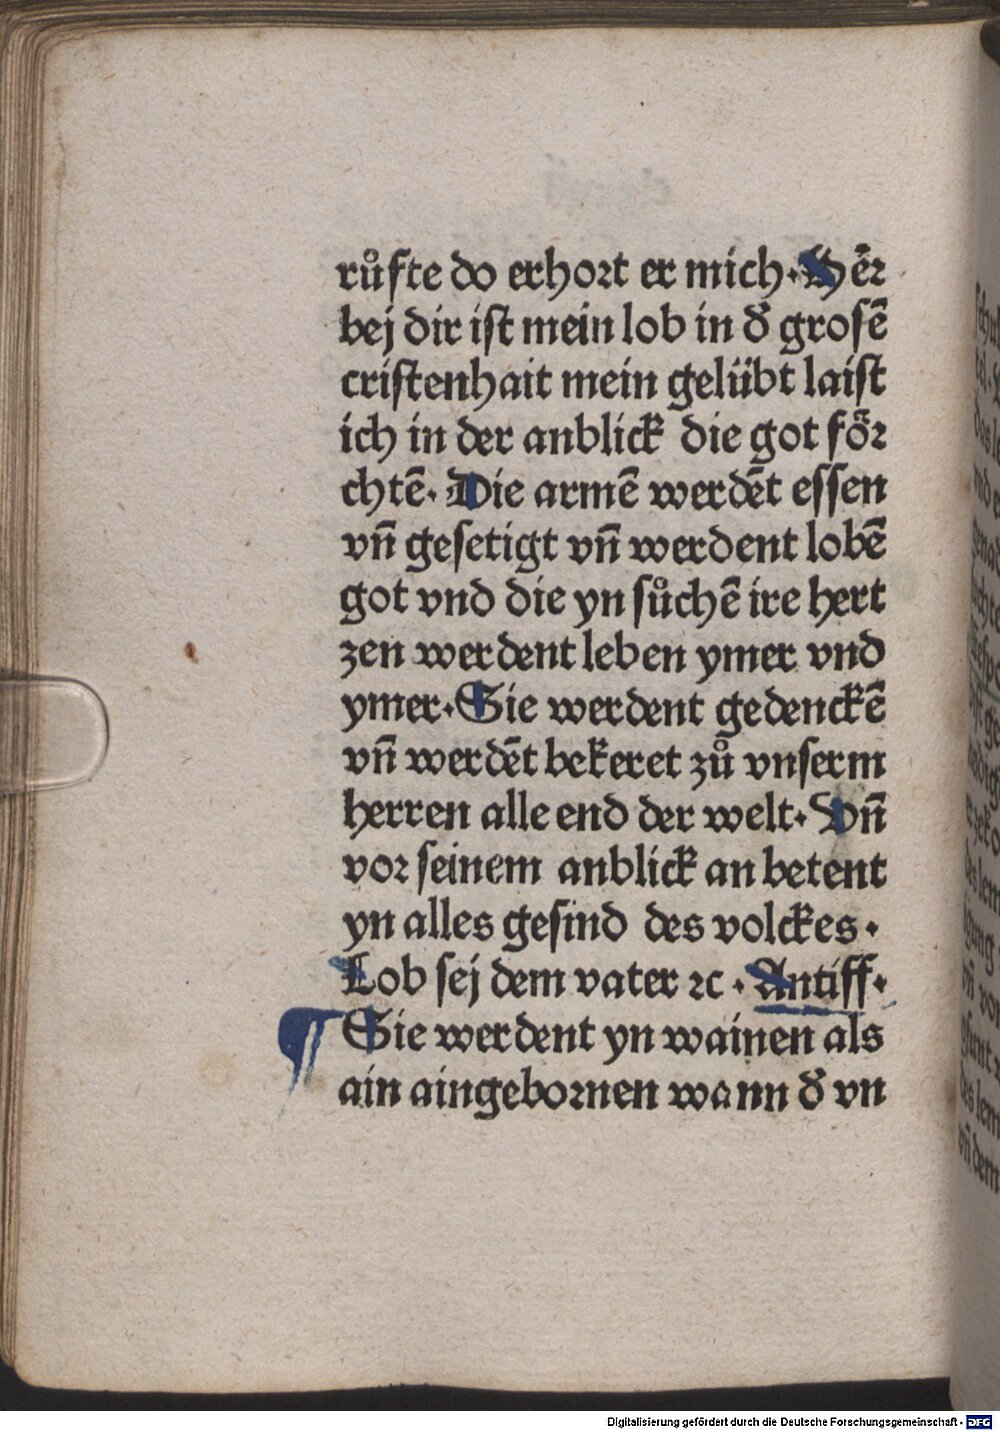 růfte do erhort er mich· Hēr
bej dir ist mein lob in d̄ grosē
cristenhait mein gelübt laist
ich in der anblick die got för
chtē· Die armē werdēt essen
vn̄ gesetigt vn̄ werdent lobē
got vnd die yn sůchē ire hert
zen werdent leben ymer vnd
ymer· Sie werdent gedenckē
vn̄ werdēt bekeret zů vnserm
herren alle end der welt· Vn̄
vor seinem anblick an betent
yn alles gesind des volckes·
Lob sej dem vater ⁊c· Antiff·
¶ Sie werdent yn wainen als
ain aingebornen wann d̄ vn
Digitalisierung gefördert durch die Deutsche Forschungsgemeinschaft - DFG